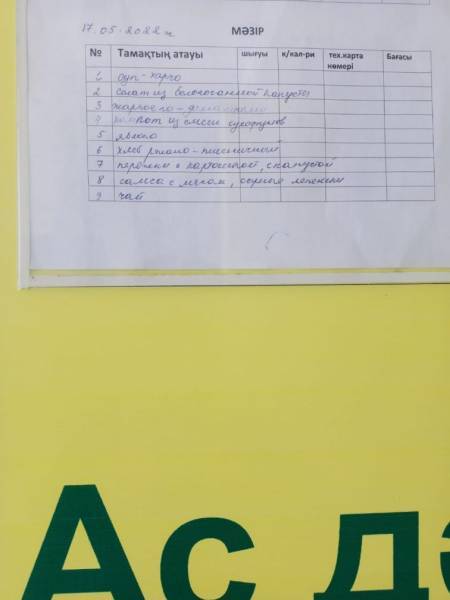 17.05-2022ж
МӘЗІР
№ Тамақтың атауы шығуы қ/кал-ри тех.карта нөмері Бағасы
1 суп-харчо
2 салат из белокочанной капусты
3 жаркое по-домашнему
4 компот из смеси сухофруктов
5 яблоко
6 хлеб ржано-пшеничный
7 пирожки с картошкой, с капустой
8 самса с мясом, сырные лепешки
9 чай
Ас дә